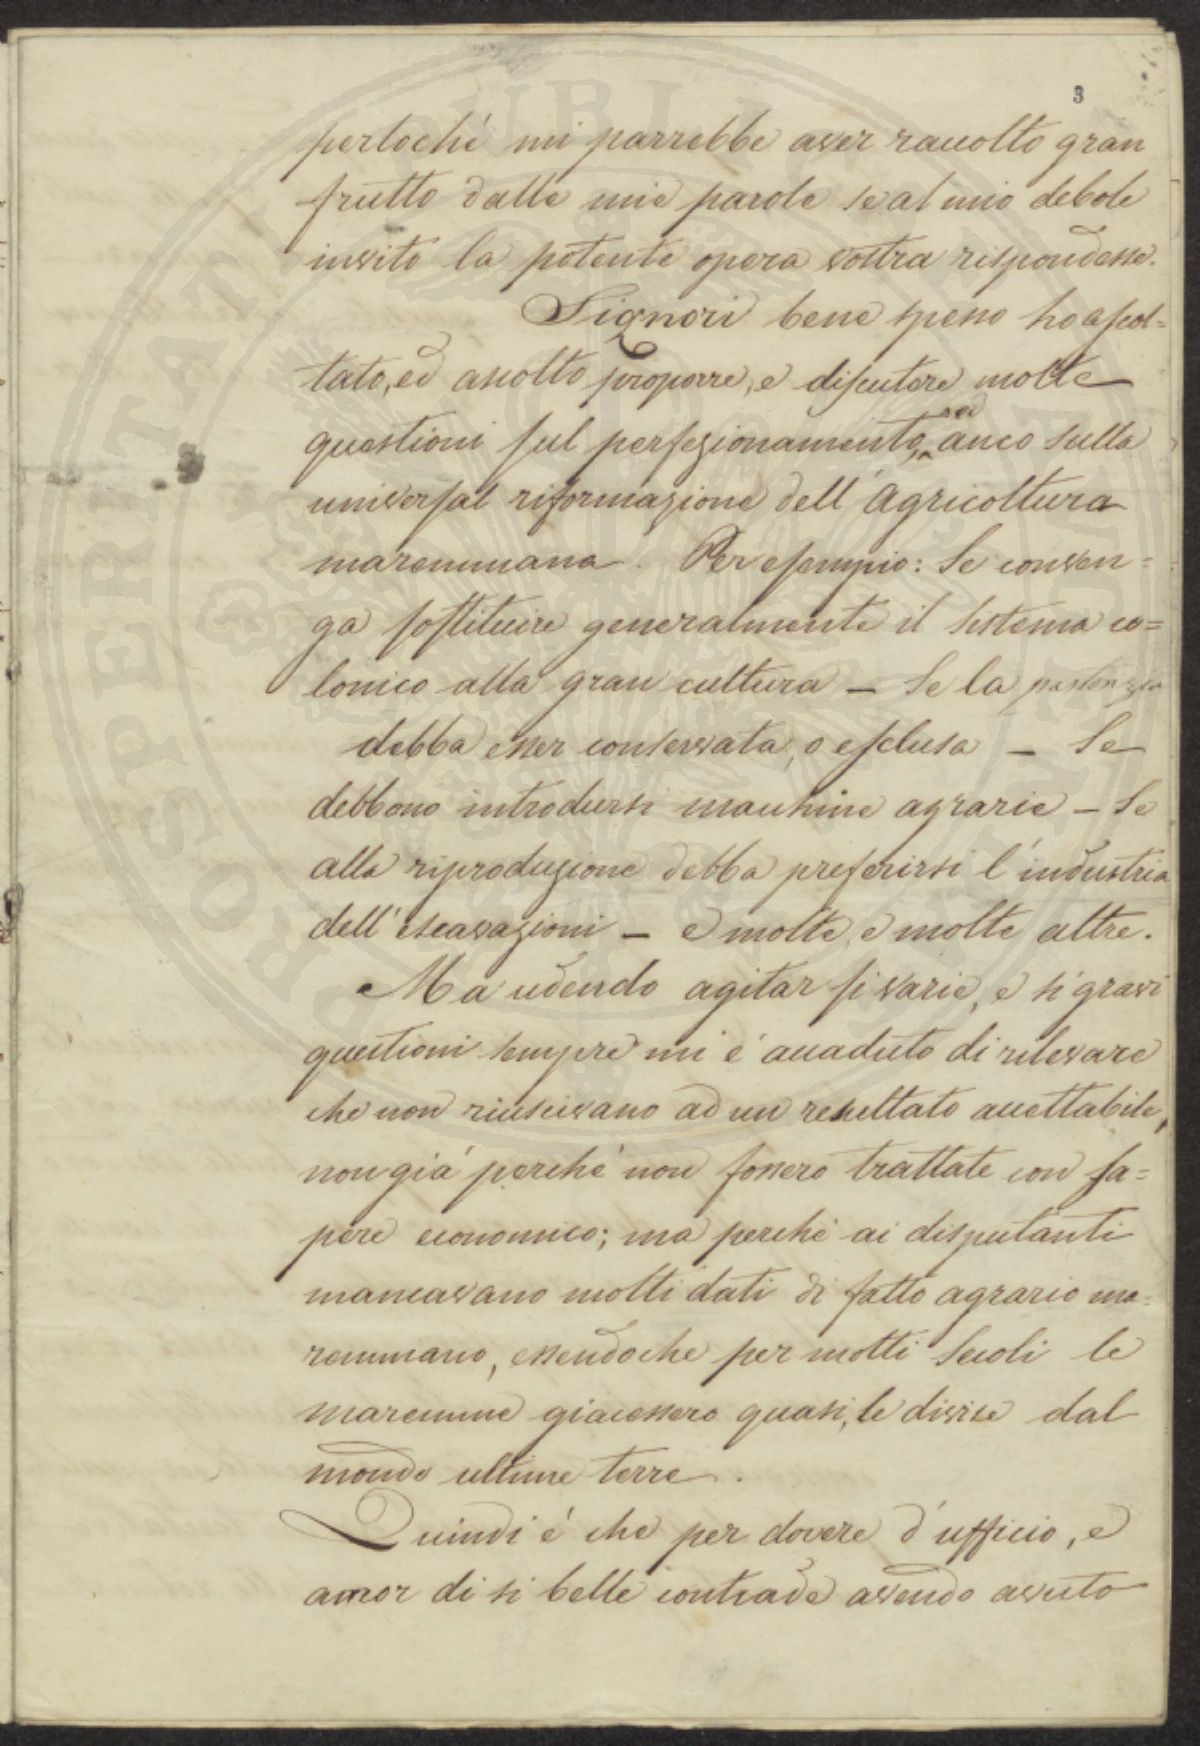 3
pertoché mi parrebbe aver raccolto gran
frutto dalle mie parole se al mio debole
invito la potente opera vostra rispondesse.
Signori bene spesso ho ascol=
tato, ed ascolto proporre, e discutere molte
questioni sul perfezionamento, ed anco sulla
universal riformazione dell'Agricoltura
maremmana. Per esempio: Se conven=
ga sostituire generalmente il sistema co=
lonico alla gran cultura — Se la pastorizia
debba esser conservata, o esclusa — Se
debbono introdursi macchine agrarie — Se
alla riproduzione debba preferirsi l'industria
dell'escavazioni — e molte, e molte altre.
Ma udendo agitar si varie, e si gravi
questioni sempre mi é accaduto di rilevare
che non riuscivano ad un resultato accettabile,
non giá perché non fossero trattate con sa=
pere economico; ma perché ai disputanti
mancavano molti dati di fatto agrario ma=
remmano, essendoche per molti secoli le
maremme giacessero quasi, le divise dal
mondo ultime terre.
Quindi é che per dovere d'ufficio, e
amor di si belle contrade avendo avuto
PROSPERITATI PUBLICAE